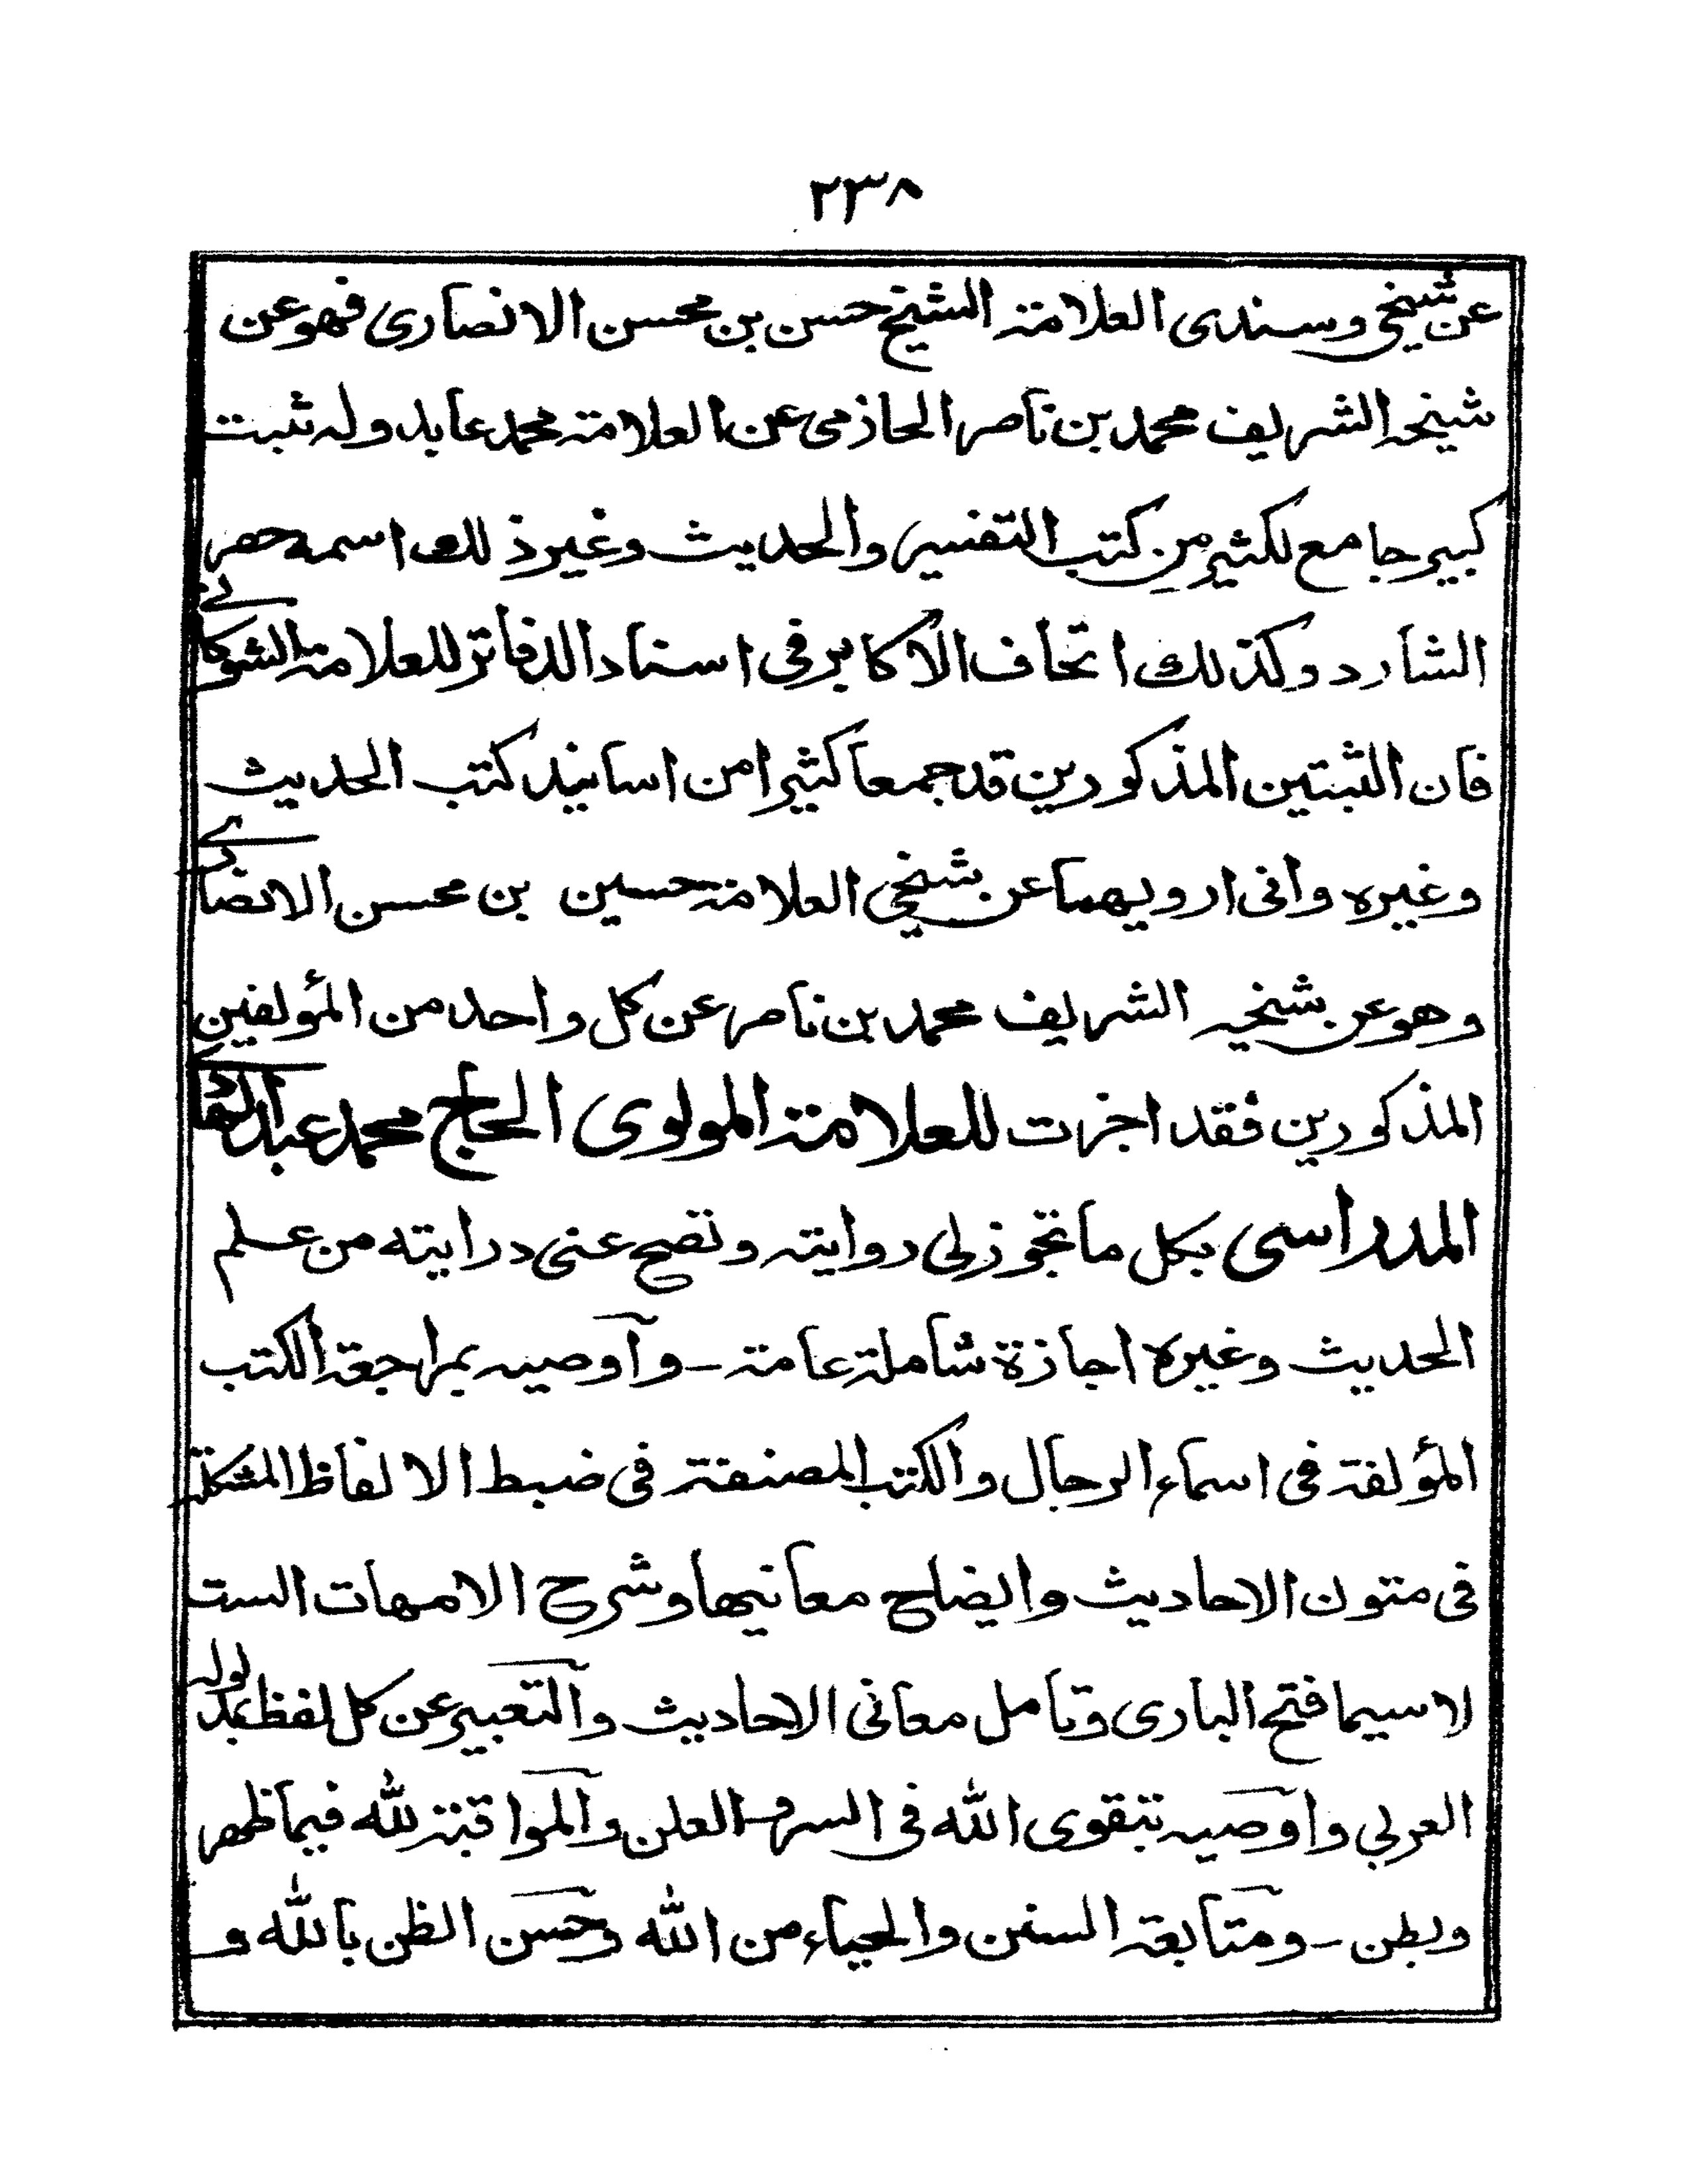 ٢٣٨
عن شيخي وسندى العلامة الشيخ حسن بن محسن الانصارى فهو عن
شيخه الشريف محمد بن ناصر الحاذمى عن العلامة محمد عابد وله ثبت
كبير جامع لكثير من كتب التفسير والحديث وغير ذلك اسمه حصر
الشارد وكذلك اتحاف الاكابر فى اسناد الدفاتر للعلامة الشوكانے
فان الثبتين المذكورين قد جمعا كثيرا من اسانيد كتب الحديث
وغيره وانى ارويهما عن شيخي العلامة حسين بن محسن الانصارے
وهو عن شيخه الشريف محمد بن ناصر عن كل واحد من المؤلفين
المذكورين فقد اجزت للعلامة المولوى الحاج محمد عبد الهادے
المدراسى بكل ما تجوز لى روايته وتصح عنى درايته من علم
الحديث وغيره اجازة شاملة عامة - وآوصيه بمراجعة الكتب
المؤلفة فى اسماء الرجال والكتب المصنفة فى ضبط الالفاظ المشكلة
فى متون الاحاديث وايضاح معانيها وشرح الامهات الست
لاسيما فتح البارى وتامل معانى الاحاديث والتعبير عن كل لفظ بمدلوله
العربي واوصيه بتقوى الله فى السر والعلن والمواقبة لله فيما ظهر
وبطن - ومتابعة السنن والحياء من الله وحسن الظن بالله و